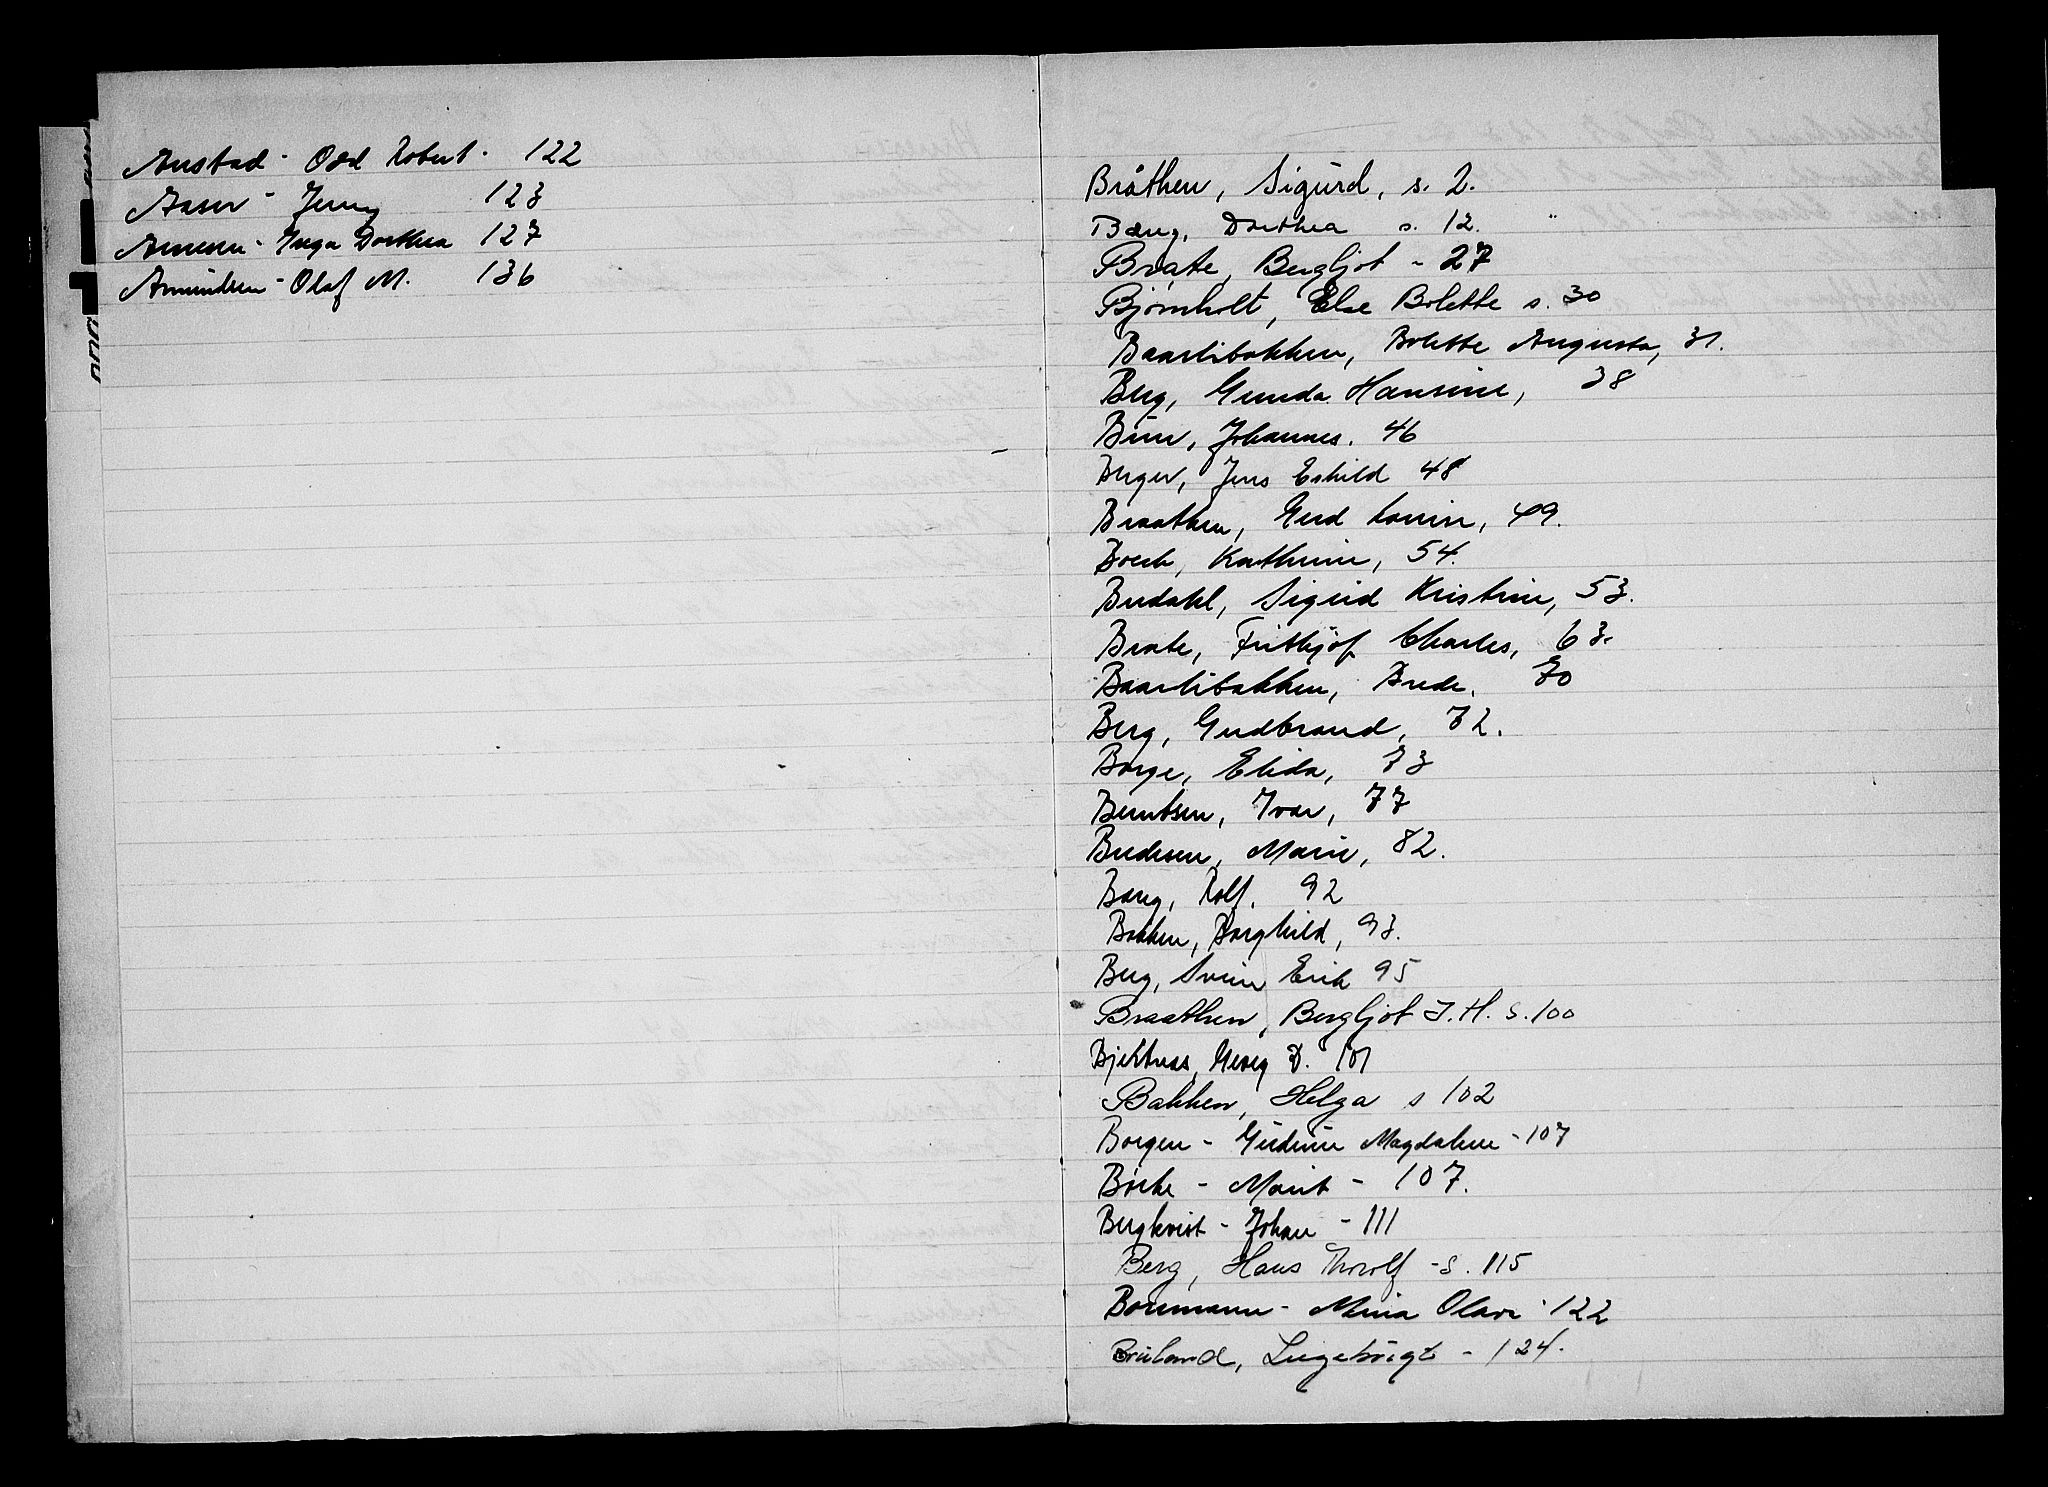 Anstad - Odd Robert - 122
Aaser - Jenny 123
Arnesen - Inga Dorthea 127
Amundsen - Olaf M. 136
Bråthen, Sigurd, s. 2.
Bang, Dorthea s. 12.
Brate, Bergljot - 27
Bjørnholt, Else Bolette s. 30
Baarlibakken, Bolette Augusta, 31.
Berg, Gunda Hansine, 38
Buer, Johannes. 46
Berger, Jens Eskild 48
Braathen, Gerd Lovise, 49.
Boeck, Kathrine, 54.
Bredahl, Sigrid Kristine, 53.
Brate, Frithjof Charles, 63.
Baarlibakken, Brede, 70
Berg, Gudbrand, 72.
Borge, Elida, 73
Berntsen, Ivar, 77
Bredesen, Marie, 82.
Bang, Rolf. 92
Bakken, Borghild, 93.
Berg, Svein Erik 95
Braathen, Bergljot J. H. s. 100
Bjeltnes, Georg D. 101
Bakken, Helga s 102
Borgen - Gudrun Magdalene - 107
Børke - Marit - 107.
Bergkvist - Johan - 111
Berg, Hans Thorolf - s. 115
Bormann - Mina Olava - 122
Bruland, Ingebrigt - 124.